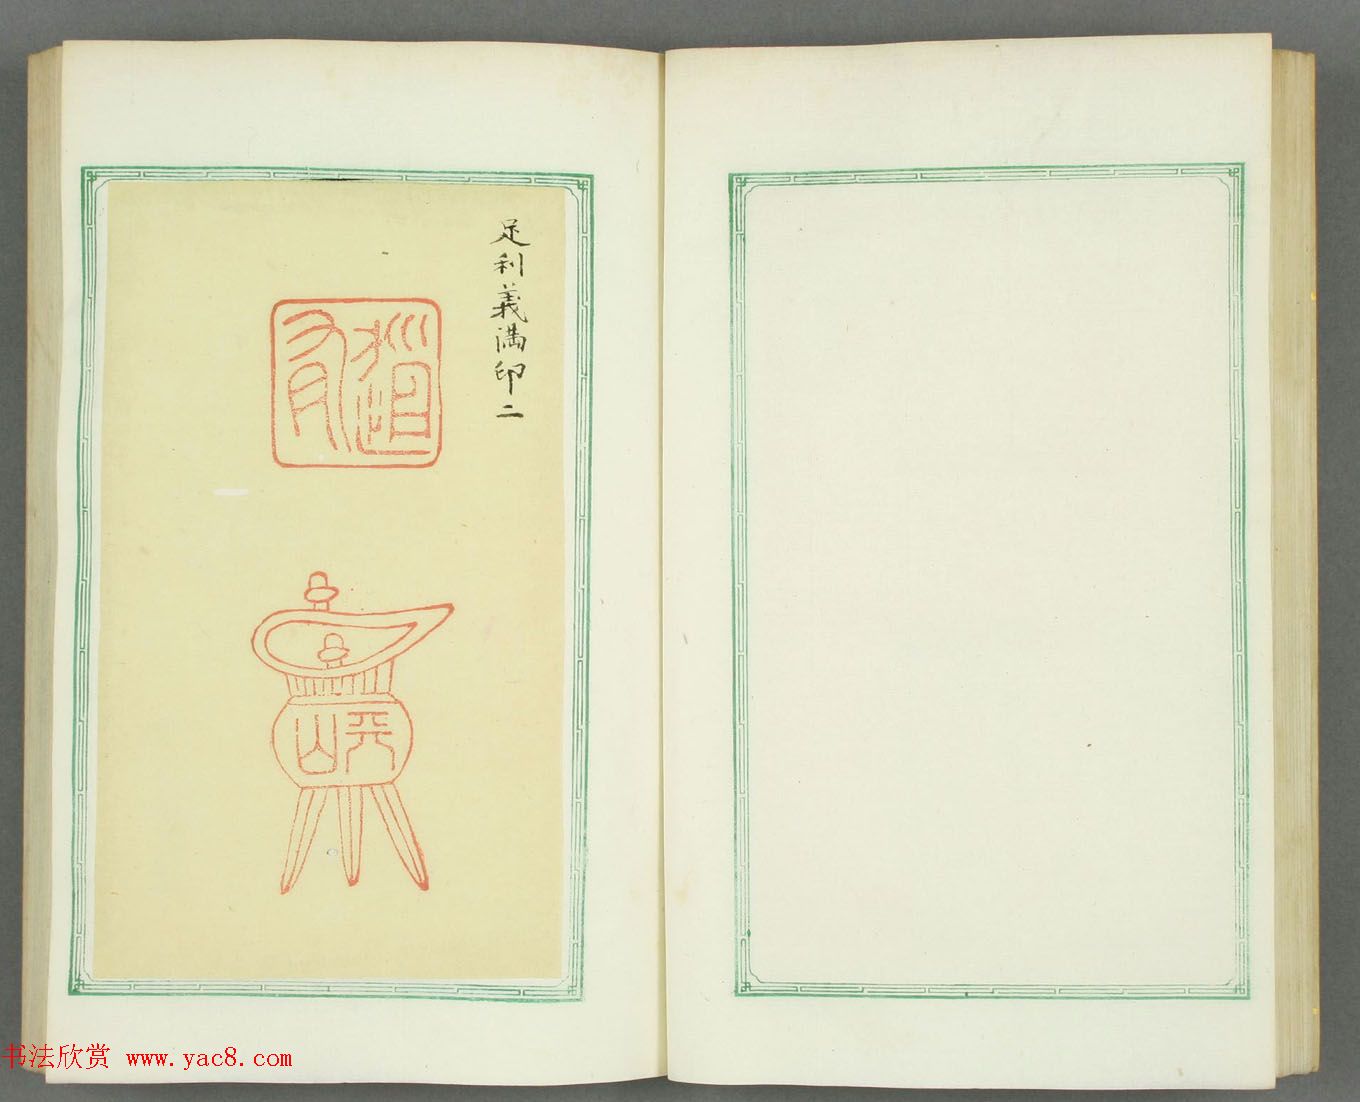 足利義満印二
道有
天山
书法欣赏 www.yac8.com